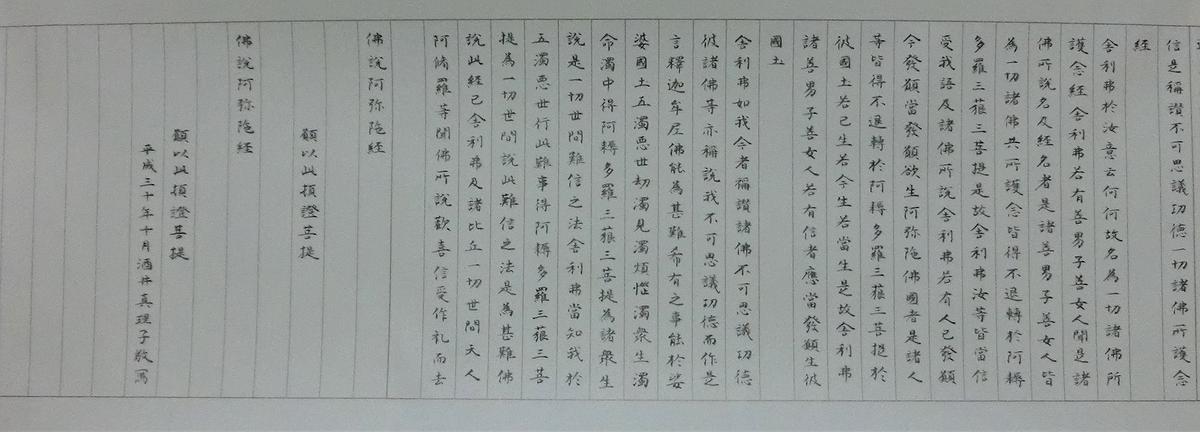 信是稱讃不可思議功德一切諸佛所護念
経
舎利弗於汝意云何何故名為一切諸佛所
護念経舎利弗若有善男子善女人聞是諸
佛所說名及経名者是諸善男子善女人皆
為一切諸佛共所護念皆得不退轉於阿耨
多羅三藐三菩提是故舎利弗汝等皆當信
受我語及諸佛所說舎利弗若有人已發願
今發願當發願欲生阿弥陁佛國者是諸人
等皆得不退轉於阿耨多羅三藐三菩提於
彼國土若已生若今生若當生是故舎利弗
諸善男子善女人若有信者應當發願生彼
國土
舎利弗如我今者稱讃諸佛不可思議功德
彼諸佛等亦稱說我不可思議功德而作是
言釋迦牟尼佛能為甚難希有之事能於娑
婆國土五濁悪世劫濁見濁煩惱濁衆生濁
命濁中得阿耨多羅三藐三菩提為諸衆生
說是一切世間難信之法舎利弗當知我於
五濁悪世行此難事得阿耨多羅三藐三菩
提為一切世間說此難信之法是為甚難佛
說此経已舎利弗及諸比丘一切世間天人
阿脩羅等聞佛所說歡喜信受作礼而去
佛說阿弥陁経
願以此頂證菩提
佛說阿弥陁経
願以此頂證菩提
平成三十年十月酒井真理子敬寫